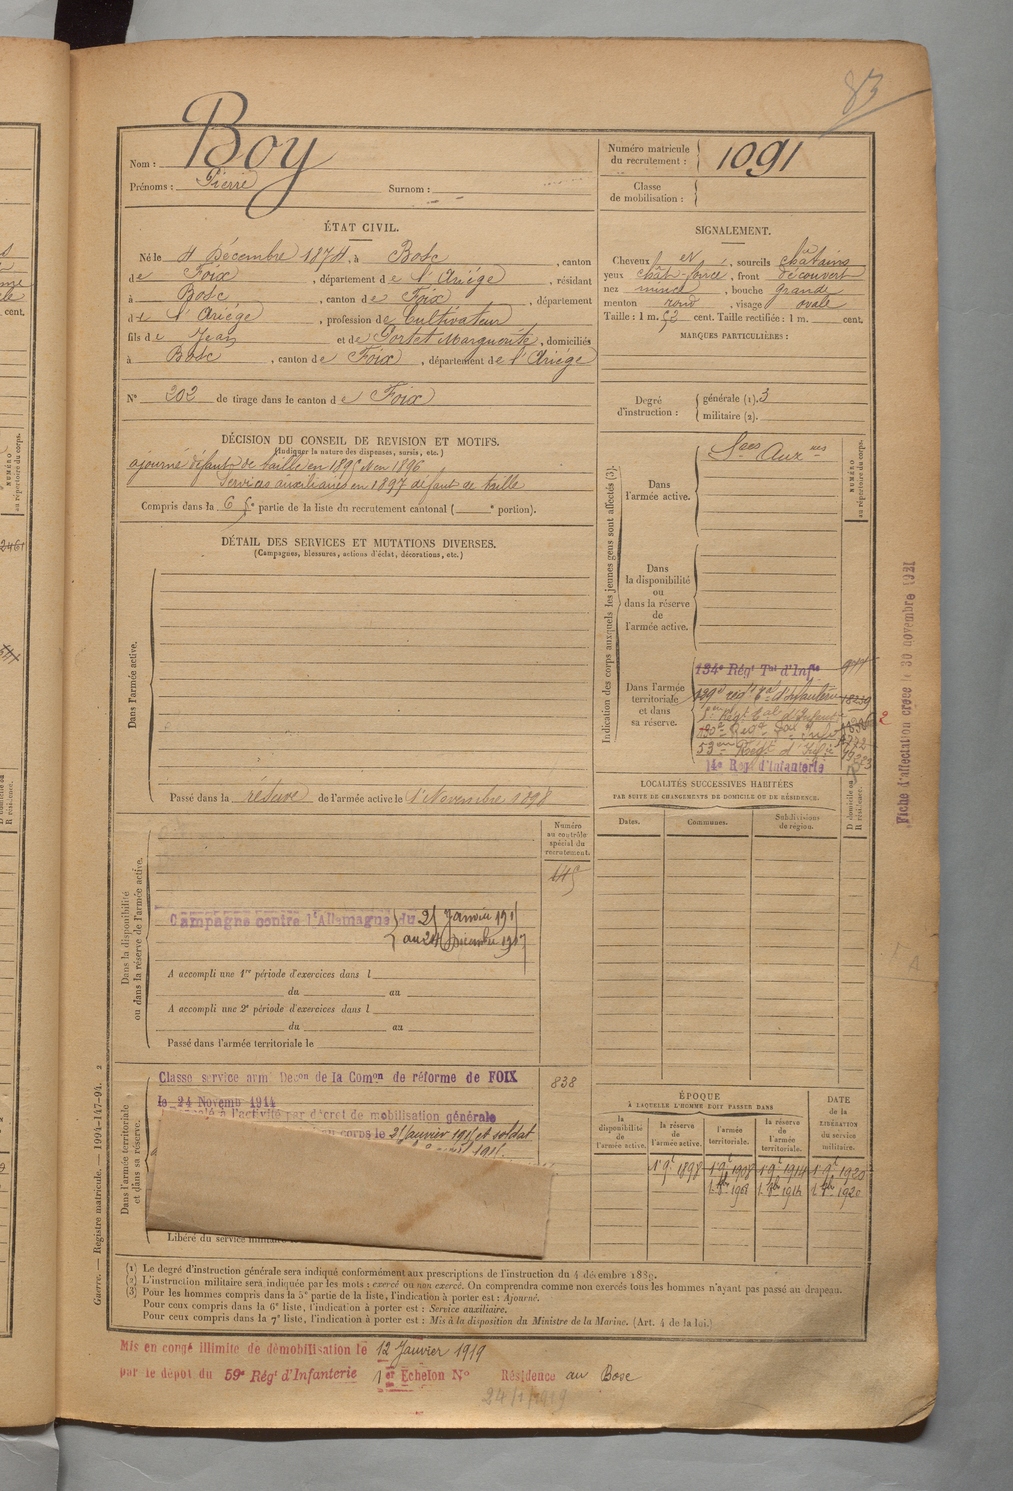 83
Nom : Boy
Prénoms : Pierre Surnom :
Numéro matricule du recrutement : 1091
Classe de mobilisation :
ÉTAT CIVIL.
Né le 4 Décembre 1874, à Bosc, canton
de Foix, département de l'Ariége, résidant
à Bosc, canton de Foix, département
de l'Ariége, profession de Cultivateur
fils de Jean et de Portet Marguerite, domiciliés
à Bosc, canton de Foix, département de l'Ariége
N° 202 de tirage dans le canton de Foix
SIGNALEMENT.
Cheveux et, sourcils châtains
yeux chât-foncé, front découvert
nez mince, bouche grande
menton rond, visage ovale
Taille : 1 m. 52 cent. Taille rectifiée : 1 m. cent.
MARQUES PARTICULIÈRES :
Degré d'instruction : générale (1). 3
militaire (2).
DÉCISION DU CONSEIL DE REVISION ET MOTIFS.
(Indiquer la nature des dispenses, sursis, etc.)
ajourné défaut de taille en 1895 et en 1896
Services auxiliaires en 1897 défaut de taille
Compris dans la 6e partie de la liste du recrutement cantonal ( e portion).
DÉTAIL DES SERVICES ET MUTATIONS DIVERSES.
(Campagnes, blessures, actions d'éclat, décorations, etc.)
Dans l'armée active.
Passé dans la réserve de l'armée active le 1 Novembre 1898
Indication des corps auxquels les jeunes gens sont affectés (3).
NUMÉRO au répertoire du corps.
Dans l'armée active.
Sces Auxres
Dans la disponibilité ou dans la réserve de l'armée active.
Dans l'armée territoriale et dans sa réserve.
134e Régt Tal d'Infie
53eme Régt d'Infie
14e Régt d'Infanterie
Fiche d'affectation créée le 30 novembre 1921
LOCALITÉS SUCCESSIVES HABITÉES
PAR SUITE DE CHANGEMENTS DE DOMICILE OU DE RÉSIDENCE.
Dates. Communes. Subdivisions de région.
D domicile ou R résidence.
Dans la disponibilité ou dans la réserve de l'armée active.
Numéro au contrôle spécial du recrutement.
Campagne contre l'Allemagne du
A accompli une 1re période d'exercices dans l
du au
A accompli une 2e période d'exercices dans l
du au
Passé dans l'armée territoriale le
Dans l'armée territoriale et dans sa réserve.
Classé service armé Decon de la Comon de réforme de FOIX
838
le 24 Novemb 1914
à l'activité par décret de mobilisation générale
corps le
et soldat
Libéré du service
ÉPOQUE
À LAQUELLE L'HOMME DOIT PASSER DANS
la disponibilité de l'armée active.
la réserve de l'armée active.
l'armée territoriale.
la réserve de l'armée territoriale.
DATE de la LIBÉRATION du service militaire.
1 9e 1898 1 9e 1908 1 9e 1914 1 9e 1920
Guerre. — Registre matricule. — 1994-147-94. 2
(1) Le degré d'instruction générale sera indiqué conformément aux prescriptions de l'instruction du 4 décembre 1889.
(2) L'instruction militaire sera indiquée par les mots : exercé ou non exercé. On comprendra comme non exercés tous les hommes n'ayant pas passé au drapeau.
(3) Pour les hommes compris dans la 5e partie de la liste, l'indication à porter est : Ajourné.
Pour ceux compris dans la 6e liste, l'indication à porter est : Service auxiliaire.
Pour ceux compris dans la 7e liste, l'indication à porter est : Mis à la disposition du Ministre de la Marine. (Art. 4 de la loi.)
Mis en congé illimité de démobilisation le 12 Janvier 1919
par le dépôt du 59e Régt d'Infanterie 1er Echelon N° Résidence au Bosc